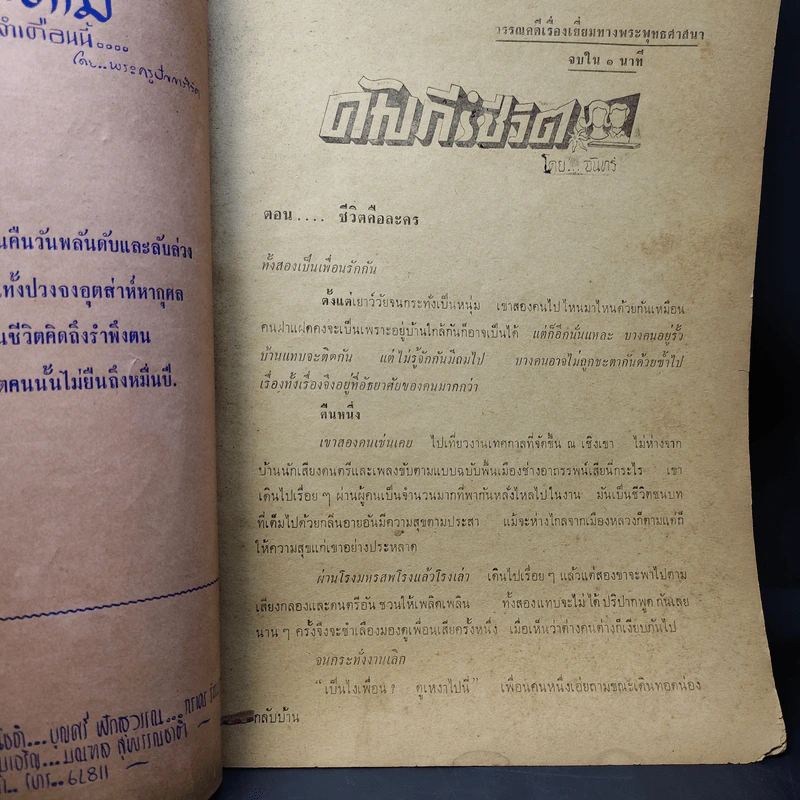 จำเดือนนี้....
โดย..พระครู
นคืนวันพลันดับและลับล่วง
ทั้งปวงจงอุตส่าห์หากุศล
ชีวิตคิดถึงรำพึงตน
ตคนนั้นไม่ยืนถึงหมื่นปี.
บุญศรี
มณฑล สุพรรณชาติ
โทร.. 67811
วรรณคดีเรื่องเยี่ยมทางพระพุทธศาสนา
จบใน ๑ นาที
คัมภีร์ชีวิต
โดย... จันทร์
ตอน.... ชีวิตคือละคร
ทั้งสองเป็นเพื่อนรักกัน
ตั้งแต่เยาว์วัยจนกระทั่งเป็นหนุ่ม เขาสองคนไปไหนมาไหนด้วยกันเหมือน
คนฝาแฝดคงจะเป็นเพราะอยู่บ้านใกล้กันก็อาจเป็นได้ แต่ก็อีกนั่นแหละ บางคนอยู่รั้ว
บ้านแทบจะติดกัน แต่ไม่รู้จักกันมีถมไป บางคนอาจไม่ถูกชะตากันด้วยซ้ำไป
เรื่องทั้งเรื่องจึงอยู่ที่อัธยาศัยของคนมากกว่า
คืนหนึ่ง
เขาสองคนเช่นเคย ไปเที่ยวงานเทศกาลที่จัดขึ้น ณ เชิงเขา ไม่ห่างจาก
บ้านนักเสียงดนตรีและเพลงขับตามแบบฉบับพื้นเมืองช่างอาถรรพน์เสียนี่กระไร เขา
เดินไปเรื่อย ๆ ผ่านผู้คนเป็นจำนวนมากที่พากันหลั่งไหลไปในงาน มันเป็นชีวิตชนบท
ที่เต็มไปด้วยกลิ่นอายอันมีความสุขตามประสา แม้จะห่างไกลจากเมืองหลวงก็ตามแต่ก็
ให้ความสุขแก่เขาอย่างประหลาด
ผ่านโรงมหรสพโรงแล้วโรงเล่า เดินไปเรื่อย ๆ แล้วแต่สองขาจะพาไปตาม
เสียงกลองและดนตรีอันชวนให้เพลิดเพลิน ทั้งสองแทบจะไม่ได้ปริปากพูดกันเลย
นาน ๆ ครั้งจึงจะชำเลืองมองดูเพื่อนเสียครั้งหนึ่ง เมื่อเห็นว่าต่างคนต่างก็เงียบกันไป
จนกระทั่งงานเลิก
“เป็นไงเพื่อน ? ดูเหงาไปนี่” เพื่อนคนหนึ่งเอ่ยถามขณะเดินทอดน่อง
กลับบ้าน